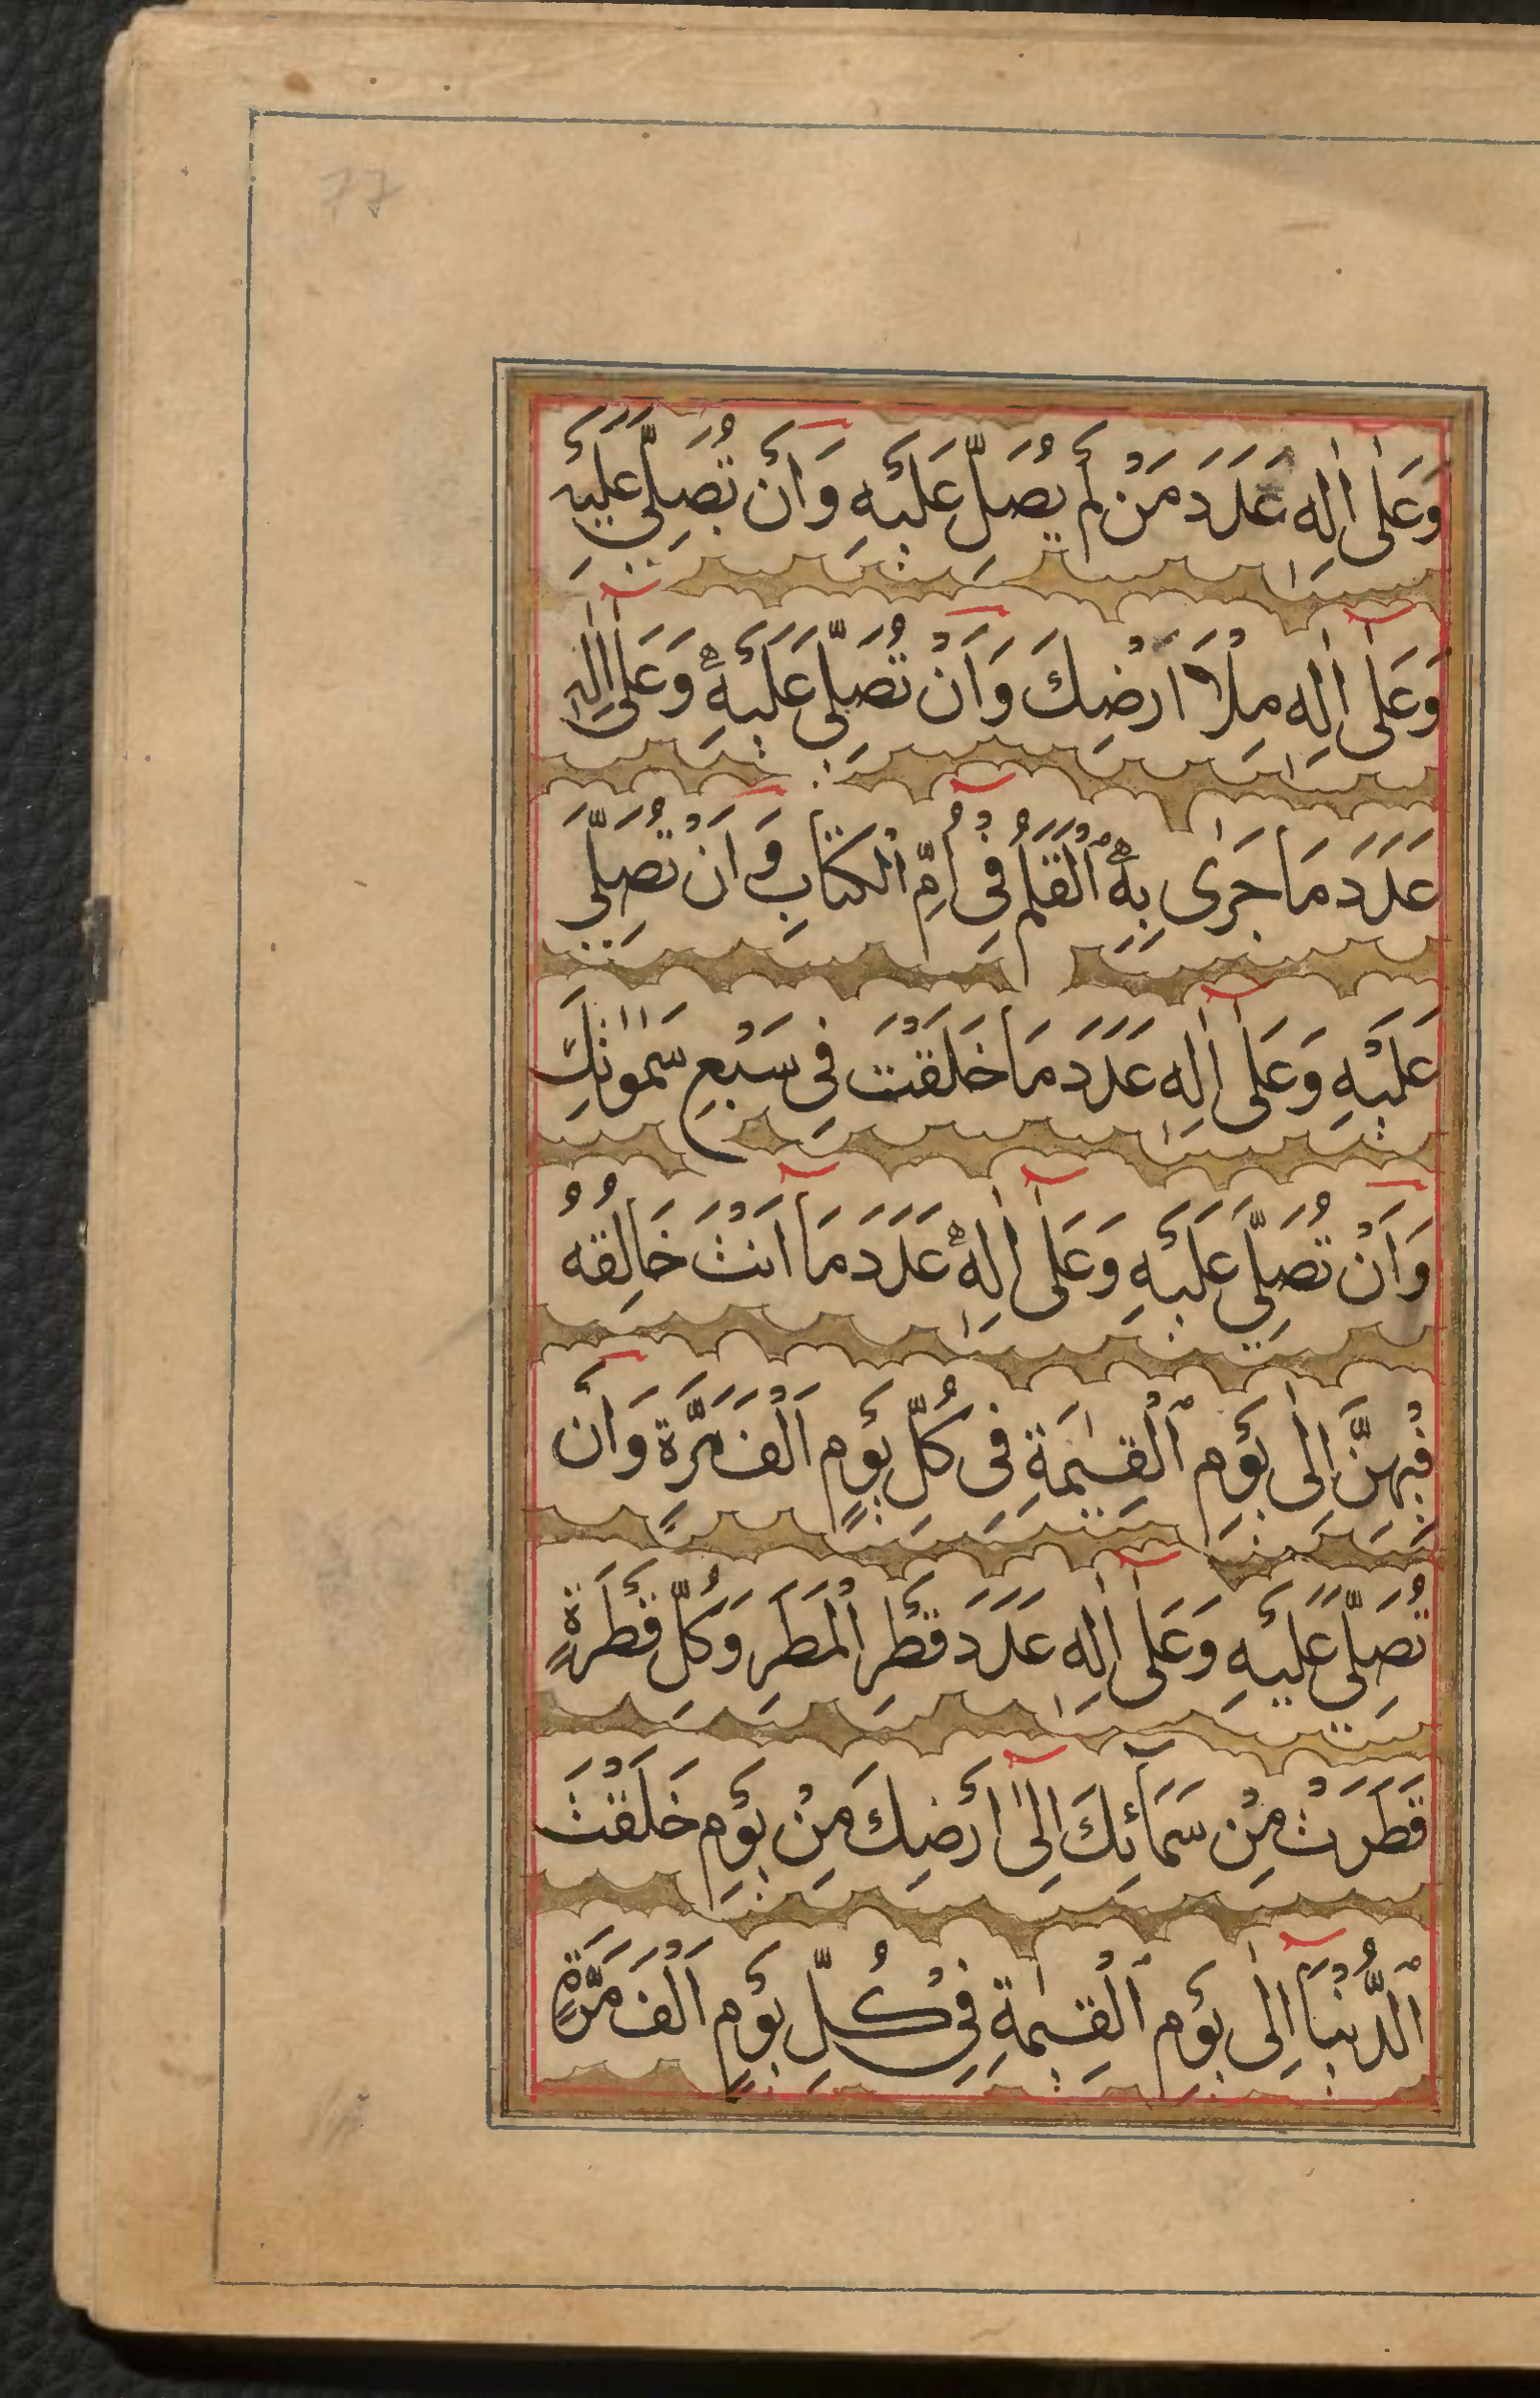 وَعَلٰى اٰلِهٖ عَدَدَ مَنْ لَمْ يُصَلِّ عَلَيْهِ وَاَنْ تُصَلِّيَ عَلَيْهِ
وَعَلٰى اٰلِهٖ مِلْأَ اَرْضِكَ وَاَنْ تُصَلِّيَ عَلَيْهِ وَعَلٰى اٰلِهٖ
عَدَدَ مَا جَرٰى بِهِ ٱلْقَلَمُ فِيْ اُمِّ الْكِتَابِ وَاَنْ تُصَلِّيَ
عَلَيْهِ وَعَلٰى اٰلِهٖ عَدَدَ مَا خَلَقْتَ فِيْ سَبْعِ سَمٰوٰتِكَ
وَاَنْ تُصَلِّيَ عَلَيْهِ وَعَلٰى اٰلِهٖ عَدَدَ مَا اَنْتَ خَالِقُهُ
فِيْهِنَّ اِلٰى يَوْمِ ٱلْقِيٰمَةِ فِيْ كُلِّ يَوْمٍ اَلْفَ مَرَّةٍ وَاَنْ
تُصَلِّيَ عَلَيْهِ وَعَلٰى اٰلِهٖ عَدَدَ قَطْرِ الْمَطَرِ وَكُلِّ قَطْرَةٍ
قَطَرَتْ مِنْ سَمَآئِكَ اِلٰى اَرْضِكَ مِنْ يَوْمِ خَلَقْتَ
ٱلدُّنْيَا اِلٰى يَوْمِ ٱلْقِيٰمَةِ فِيْ كُلِّ يَوْمٍ اَلْفَ مَرَّةٍ